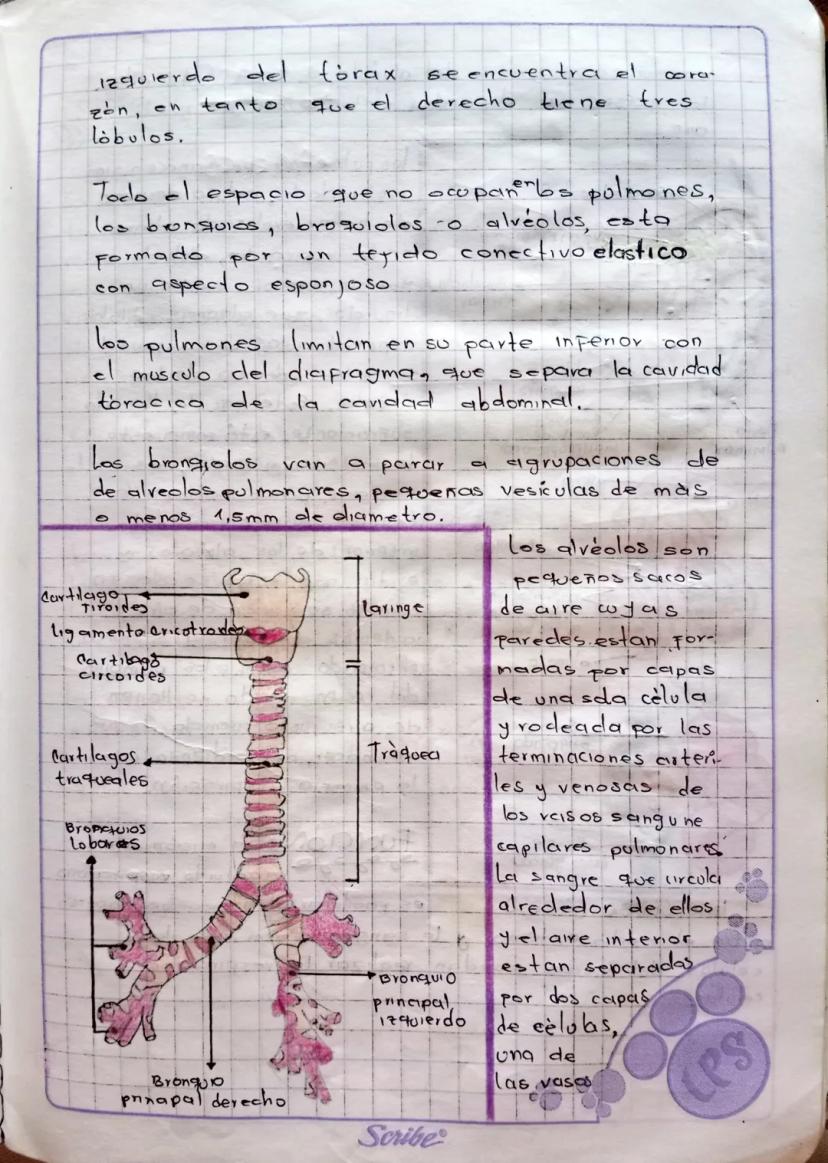 izquierdo del tòrax se encuentra el cora-
zòn, en tanto que el derecho tiene tres
lòbulos.
Todo el espacio que no ocupan en los pulmones,
los bronquios, broquiolos o alvéolos, esta
formado por un tejido conectivo elastico
con aspecto esponjoso
Los pulmones limitan en su parte inferior con
el musculo del diafragma, que separa la cavidad
tòracica de la cavidad abdominal.
Los bronqiolos van a parar a agrupaciones de
de alveolos pulmonares, pequeñas vesiculas de màs
o menos 1,5mm de diametro.
Los alvéolos son
pequeños sacos
de aire cuyas
paredes estan for-
madas por capas
de una sola cèlula
y rodeada por las
terminaciones arteri-
les y venosas de
los vasos sangune
capilares pulmonares
La sangre que circula
alrededor de ellos
y el aire interior
estan separadas
por dos capas
de cèlulas,
una de
las vasos
Cartilago
Tiroides
Ligamento cricotrodes
Cartilago
circoides
Laringe
Cartilagos
traqueales
Tràquea
Bronquios
Lobares
Bronquio
principal
izquierdo
Bronquio
prinapal derecho
LPS
Scribe